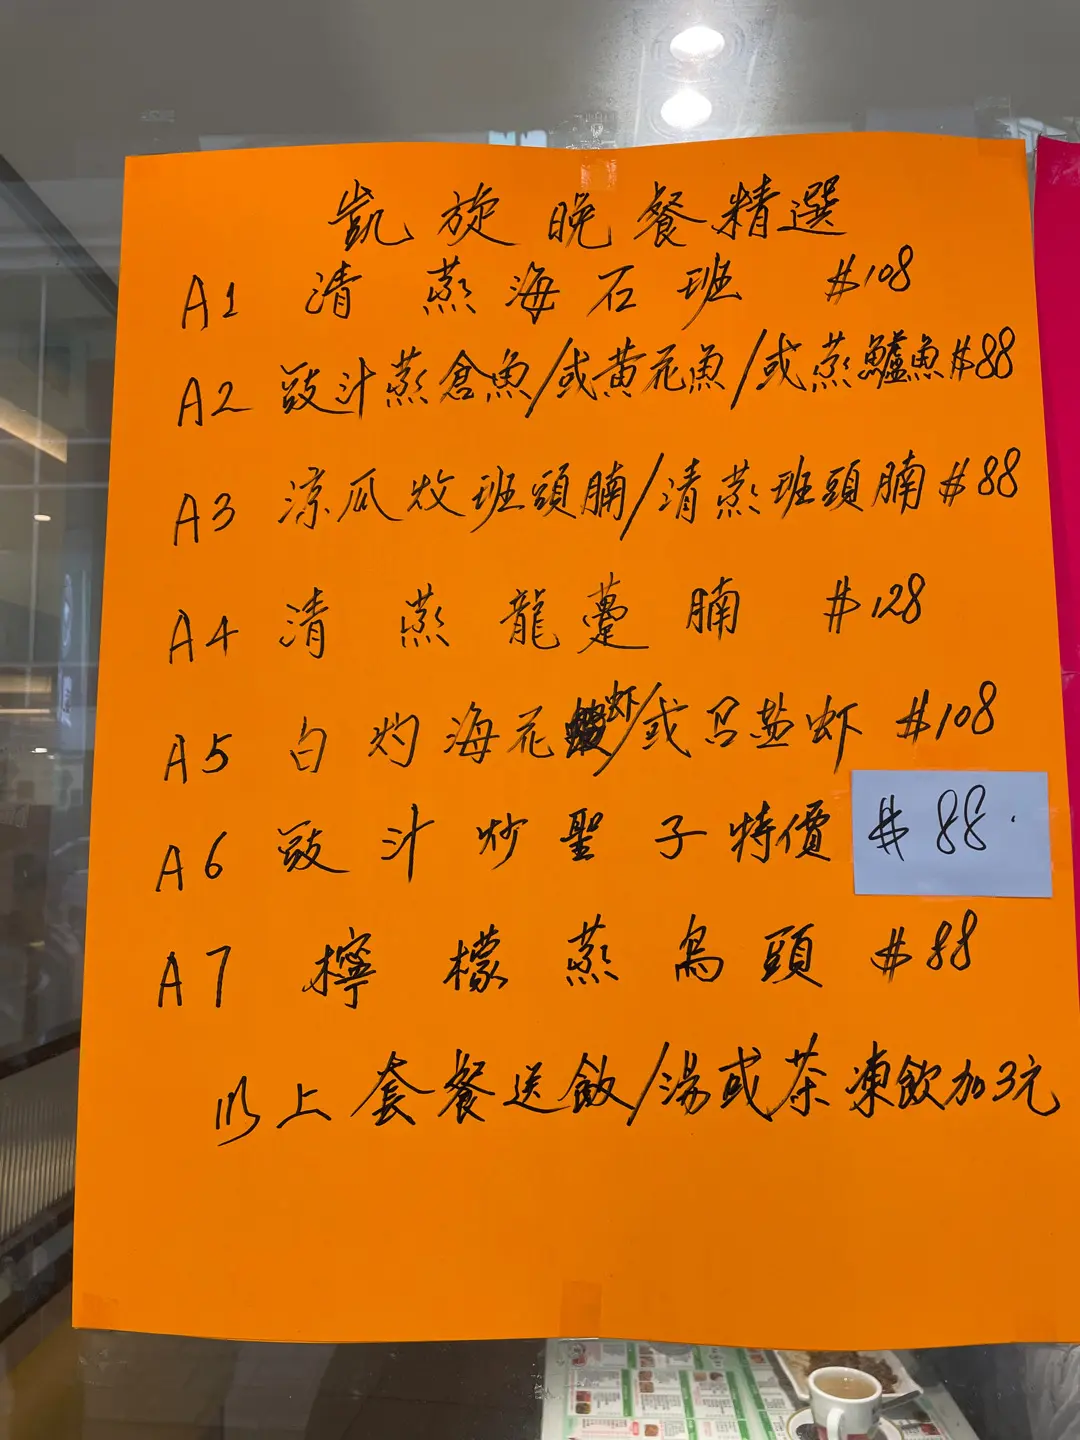 凱旋晚餐精選
A1 清蒸海石班 $108
A2 豉汁蒸倉魚/或黄花魚/或蒸鱸魚$88
A3 凉瓜炆班頭腩/清蒸班頭腩$88
A4 清蒸龍躉腩 $128
A5 白灼海花虾/或召盐虾 $108
A6 豉汁炒聖子特價 $88.
A7 檸檬蒸烏頭 $88
以上套餐送飯/湯或茶凍飲加3元